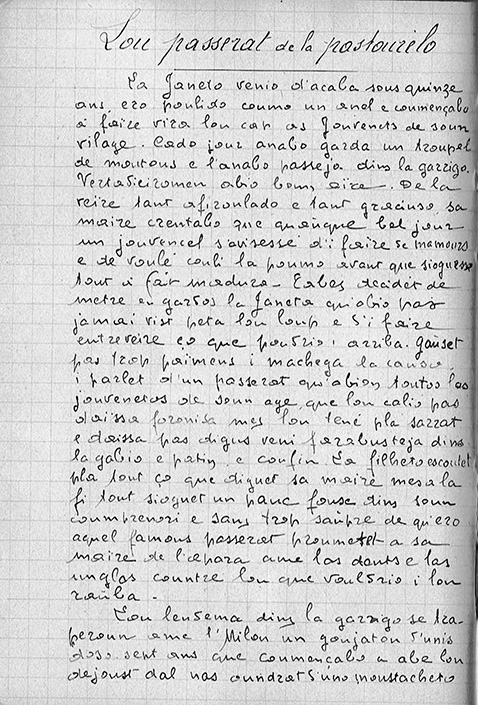 Lou passerat de la pastourélo
La Janeto venio d'acaba sous quinze
ans, ero poulido coumo un anel e coumençabo
à faire vira lou cap as Jouvents de soun
vilage. Cado jour anabo garda un troupel
de moutous e l'anabo passeja dins la garrigo.
Vertadieiromen abio boun aire. De la
veire tant afiroulado e tant graciuso, sa
maire crentabo que quauque bel jour
un jouvencel s'avisesse d'i faire se mamours
e de voulé culi la poumo avant que siogesse
tout à fait maduro. Labes decidèt de
metre en gardos la Janeto qu'abio pas
jamai vist peta lou loup e d'i faire
entreveire ço que pourrio i arriba. Gauset
pas trop paimens i machega la causo
i parlet d'un passerat qu'abion toutos las
jouvenetos de soun age, que lou calio pas
daissa foronisa mes lou tené pla sarrat
e daissa pas digus veni farabusteja dins
la gabio e patin e coufin. La filheto escoutet
pla tout ço que diguet sa maire mes ala
fi tout sioguet un pauc fouse dins soun
coumprenori e sans trop saupre de qu'ero
aquel famous passerat proumetèt a sa
maire de l'apara ame las dants e las
unglos countre lou que voultrio i lou
rauba.
Lou lendema dins la garrigo se tra-
peroun ame l'Milou un goujatou d'unis
doso sept ans que coumençabo a abe lou
dejoust dal nas oundrat d'uno moustacheto